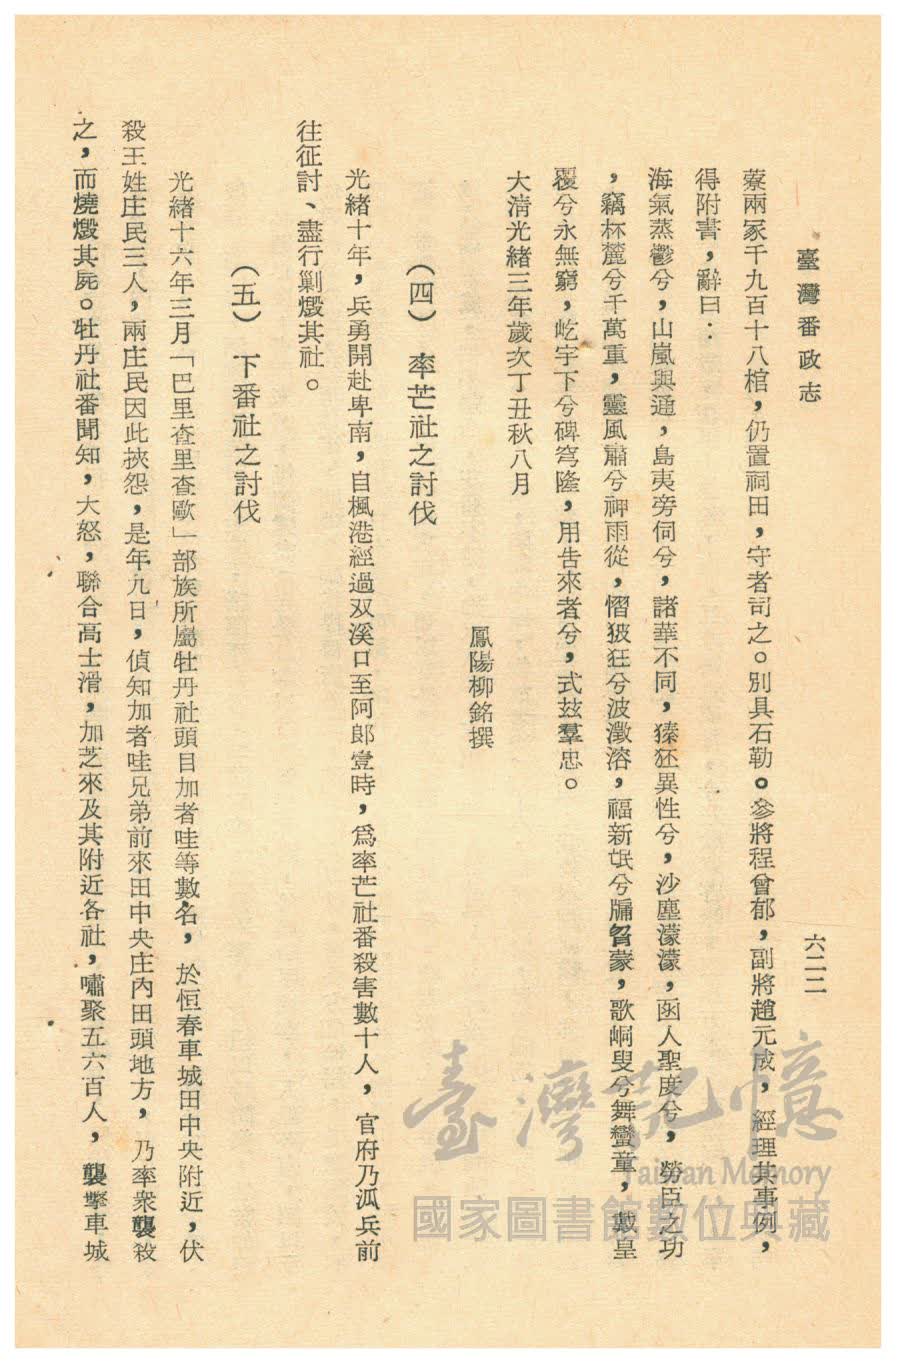 臺灣番政志
六二二
藔兩冢千九百十八棺，仍置祠田，守者司之。別具石勒。參將程曾郁，副將趙元成，經理其事例，
得附書，辭曰：
海氣蒸鬱兮，山嵐與通，島夷旁伺兮，諸華不同，獉狉異性兮，沙塵濛濛，函人聖度兮，勞臣之功
，竊杯麓兮千萬重，靈風肅兮神雨從，慴狓狂兮波瀓溶，福新氓兮牗瞀蒙，歌峒叟兮舞蠻童，戴皇
覆兮永無窮，屹宇下兮碑穹隆，用告來者兮，式玆羣忠。
大清光緒三年歲次丁丑秋八月
鳳陽柳銘撰
（四）　率芒社之討伐
光緒十年，兵勇開赴卑南，自楓港經過双溪口至阿郎壹時，爲率芒社番殺害數十人，官府乃派兵前
往征討、盡行剿燬其社。
（五）　下番社之討伐
光緒十六年三月「巴里查里查歐」一部族所屬牡丹社頭目加者哇等數名，於恒春車城田中央附近，伏
殺王姓庄民三人，兩庄民因此挾怨，是年九日，偵知加者哇兄弟前來田中央庄內田頭地方，乃率衆襲殺
之，而燒燬其屍。牡丹社番聞知，大怒，聯合高士滑，加芝來及其附近各社，嘯聚五六百人，襲擊車城
臺灣記憶
Taiwan Memory
國家圖書館數位典藏